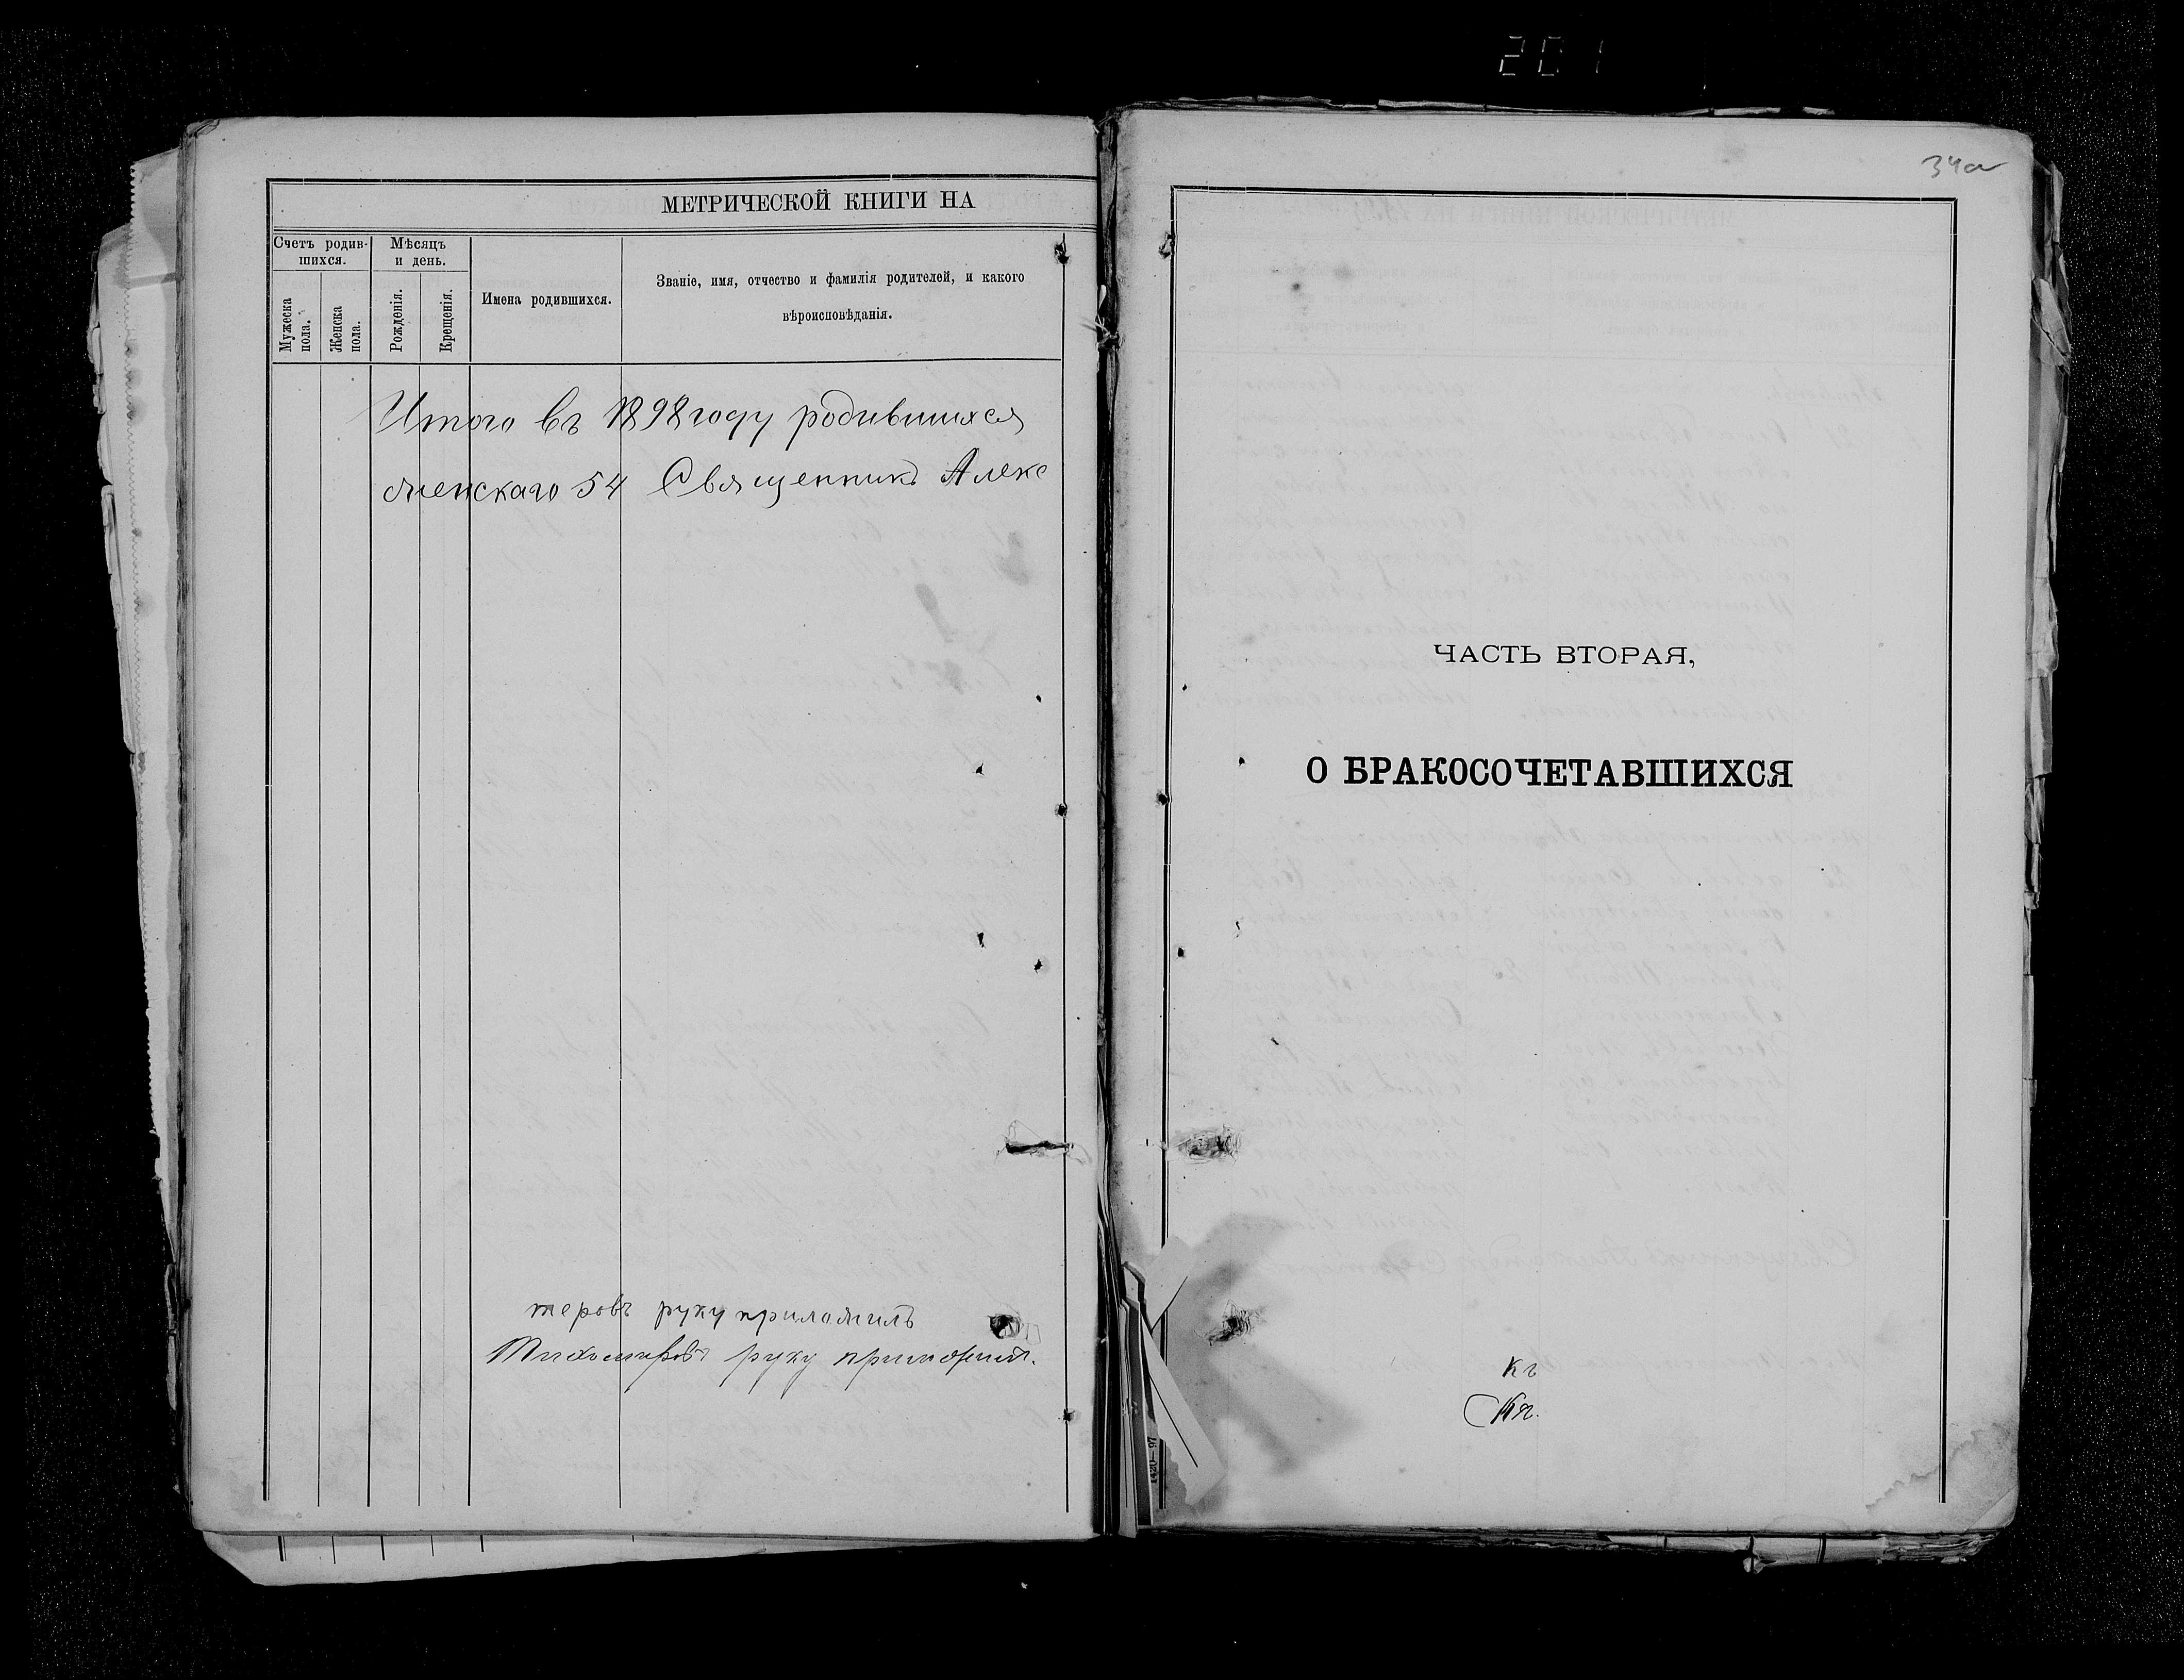 201
МЕТРИЧЕСКОЙ КНИГИ НА
Счетъ родив-
шихся.
Мѣсяцъ
и день.
Мужеска
пола.
Женска
пола.
Рожденія.
Крещенія.
Имена родившихся.
Званіе, имя, отчество и фамилія родителей, и какого
вѣроисповѣданія.
Итого въ 1898 году родившихся
женскаго 54 Священникъ Алекс
теровъ руку приложилъ
Тихомировъ руку приложилъ.
34а
ЧАСТЬ ВТОРАЯ,
О БРАКОСОЧЕТАВШИХСЯ
къ
1420—97